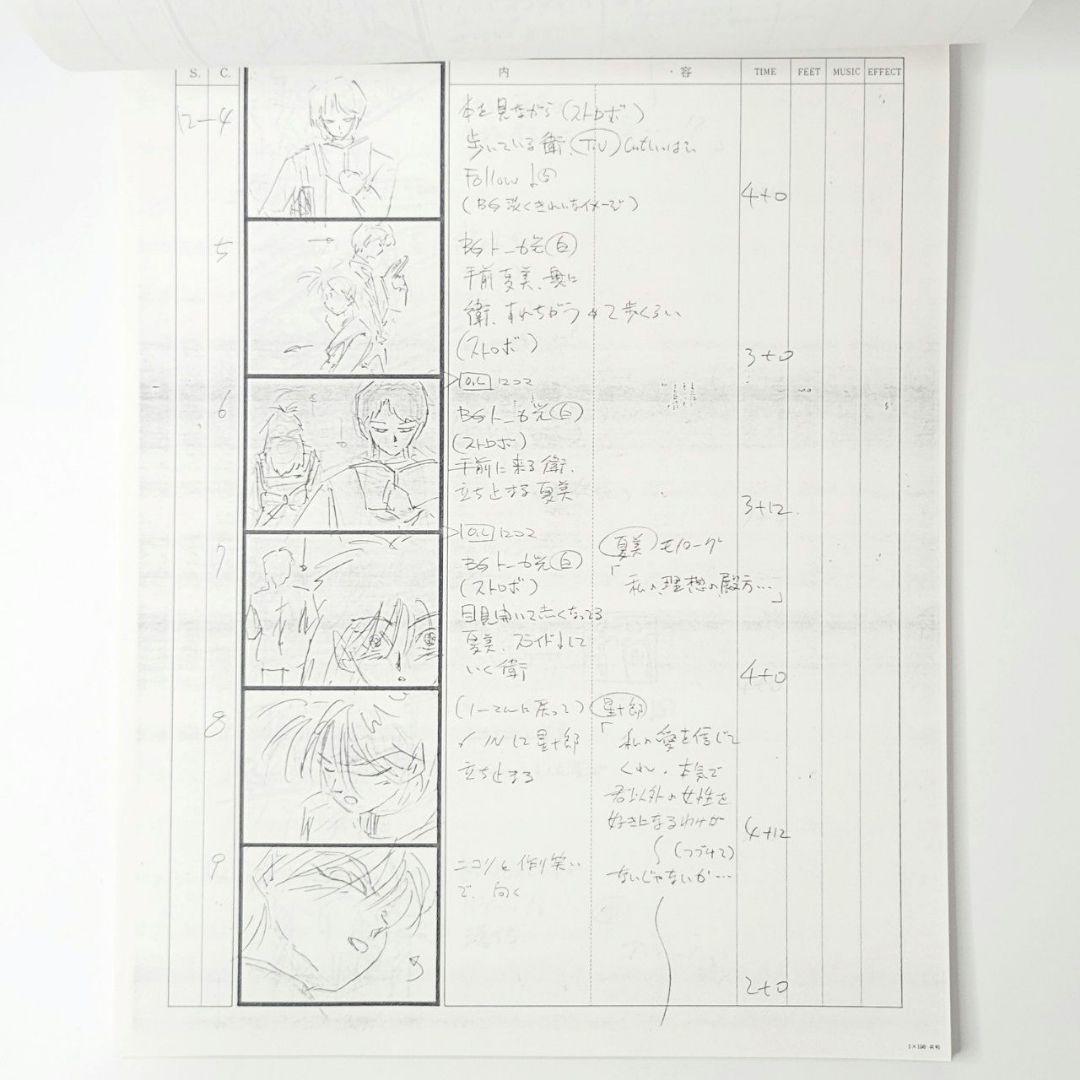 S. C. 内・容 TIME FEET MUSIC EFFECT
12-4
本を見ながら(ストロボ)
歩いている衛、(T.U)
Follow
(BG淡くきれいなイメージ)
4+0
5
BGトーカ光(白)
手前夏美、奥に
衛、すれちがう 歩くろい
(ストロボ)
3+0
6
O.L 12コマ
BGトーカ光(白)
(ストロボ)
手前に来る衛、
立ち止まる夏美
3+12
7
O.L 12コマ
BGトーカ光(白)
(ストロボ)
目見開いて赤くなってる
夏美、スライドして
いく衛
夏美 モノローグ
「私の理想の殿方…」
4+0
8
(に戻って)
INして星十郎
立ち止まる
星十郎
「私の愛を信じて
くれ。本気で
君以外の女性を
好きになるわけが
(つづけて)
4+12
9
ニコリと作り笑い
で、向く
ないじゃないか…
2+0